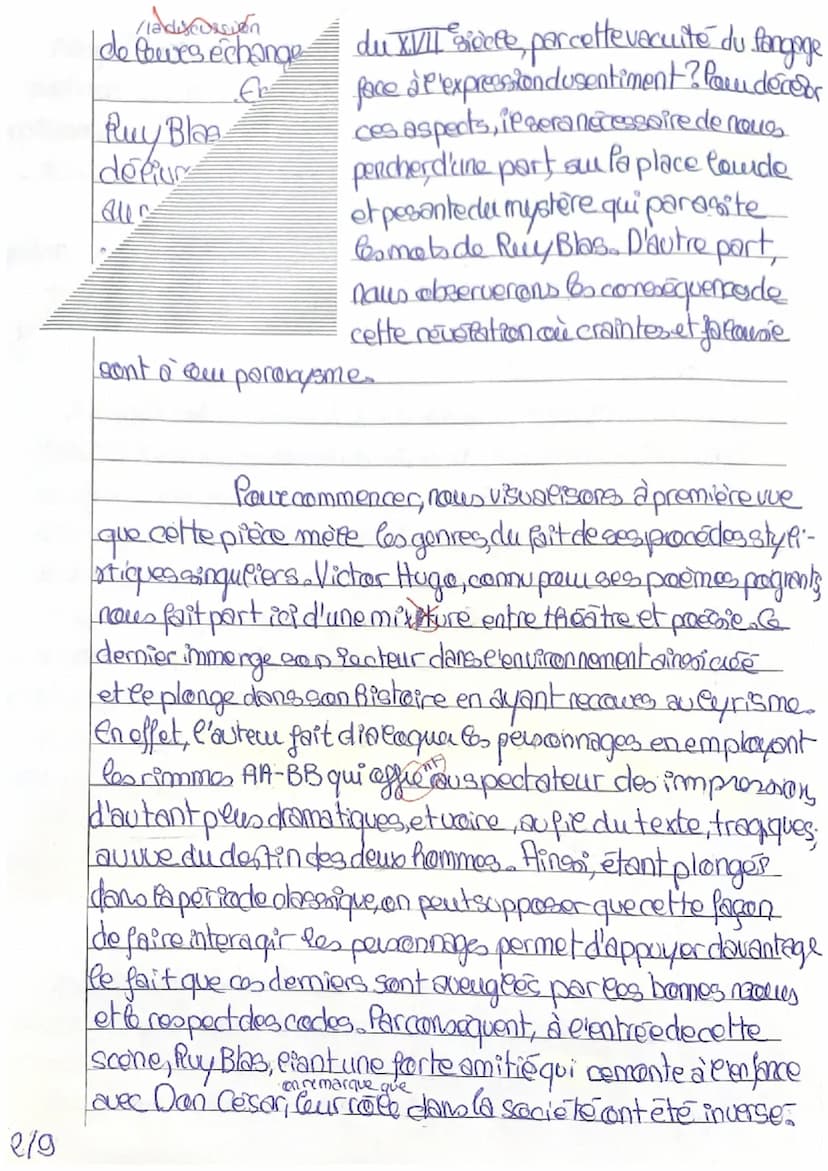 /la discussion
de leurs échange
En
Ruy Blas
défiun
aux
du XVIIe siècle, par cette vacuité du langage
face à l'expression du sentiment? Pour déceler
ces aspects, il sera nécessaire de nous
pencher d'une part, sur la place lourde
et pesante du mystère qui parasite
les mots de Ruy Blas. D'autre part,
nous observerons les conséquences de
cette révélation où craintes et jalousie
sont à leur paroxysme.
Pour commencer, nous visualisons à première vue
que cette pièce mêle les genres, du fait de ses procédés styli-
stiques singuliers. Victor Hugo, connu pour ses poèmes poignants,
nous fait part ici d'une mixture entre théâtre et poésie. Ce
dernier immerge son lecteur dans l'environnement ainsi créé
et le plonge dans son histoire en ayant recours au lyrisme.
En effet, l'auteur fait dialoguer les personnages en employant
les rimmes AA-BB qui offrent au spectateur des impressions
d'autant plus dramatiques, et voire, au fil du texte, tragiques;
au vue du destin des deux hommes. Ainsi, étant plonger
dans la période classique, on peut supposer que cette façon
de faire interagir les personnages permet d'appuyer davantage
le fait que ces derniers sont aveuglés par les bonnes mœurs
et le respect des codes. Par conséquent, à l'entrée de cette
scène, Ruy Blas, liant une forte amitié qui remonte à l'enfance
avec Don César, on remarque que leur rôle dans la société ont été inversé-
2/9